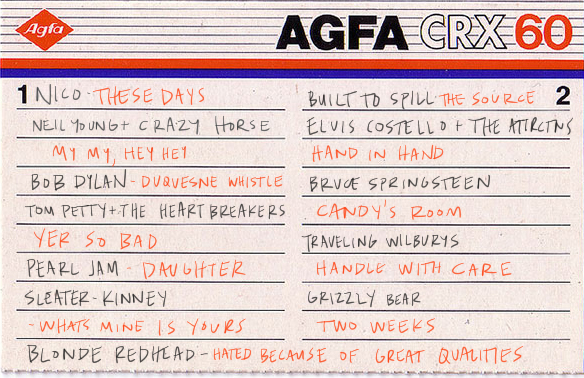 Agfa
AGFA CRX 60
1 NICO - THESE DAYS
NEIL YOUNG + CRAZY HORSE
MY MY, HEY HEY
BOB DYLAN - DUQUESNE WHISTLE
TOM PETTY + THE HEARTBREAKERS
YER SO BAD
PEARL JAM - DAUGHTER
SLEATER-KINNEY
- WHATS MINE IS YOURS
BUILT TO SPILL THE SOURCE 2
ELVIS COSTELLO + THE ATTRCTNS
HAND IN HAND
BRUCE SPRINGSTEEN
CANDY'S ROOM
TRAVELING WILBURYS
HANDLE WITH CARE
GRIZZLY BEAR
TWO WEEKS
BLONDE REDHEAD - HATED BECAUSE OF GREAT QUALITIES